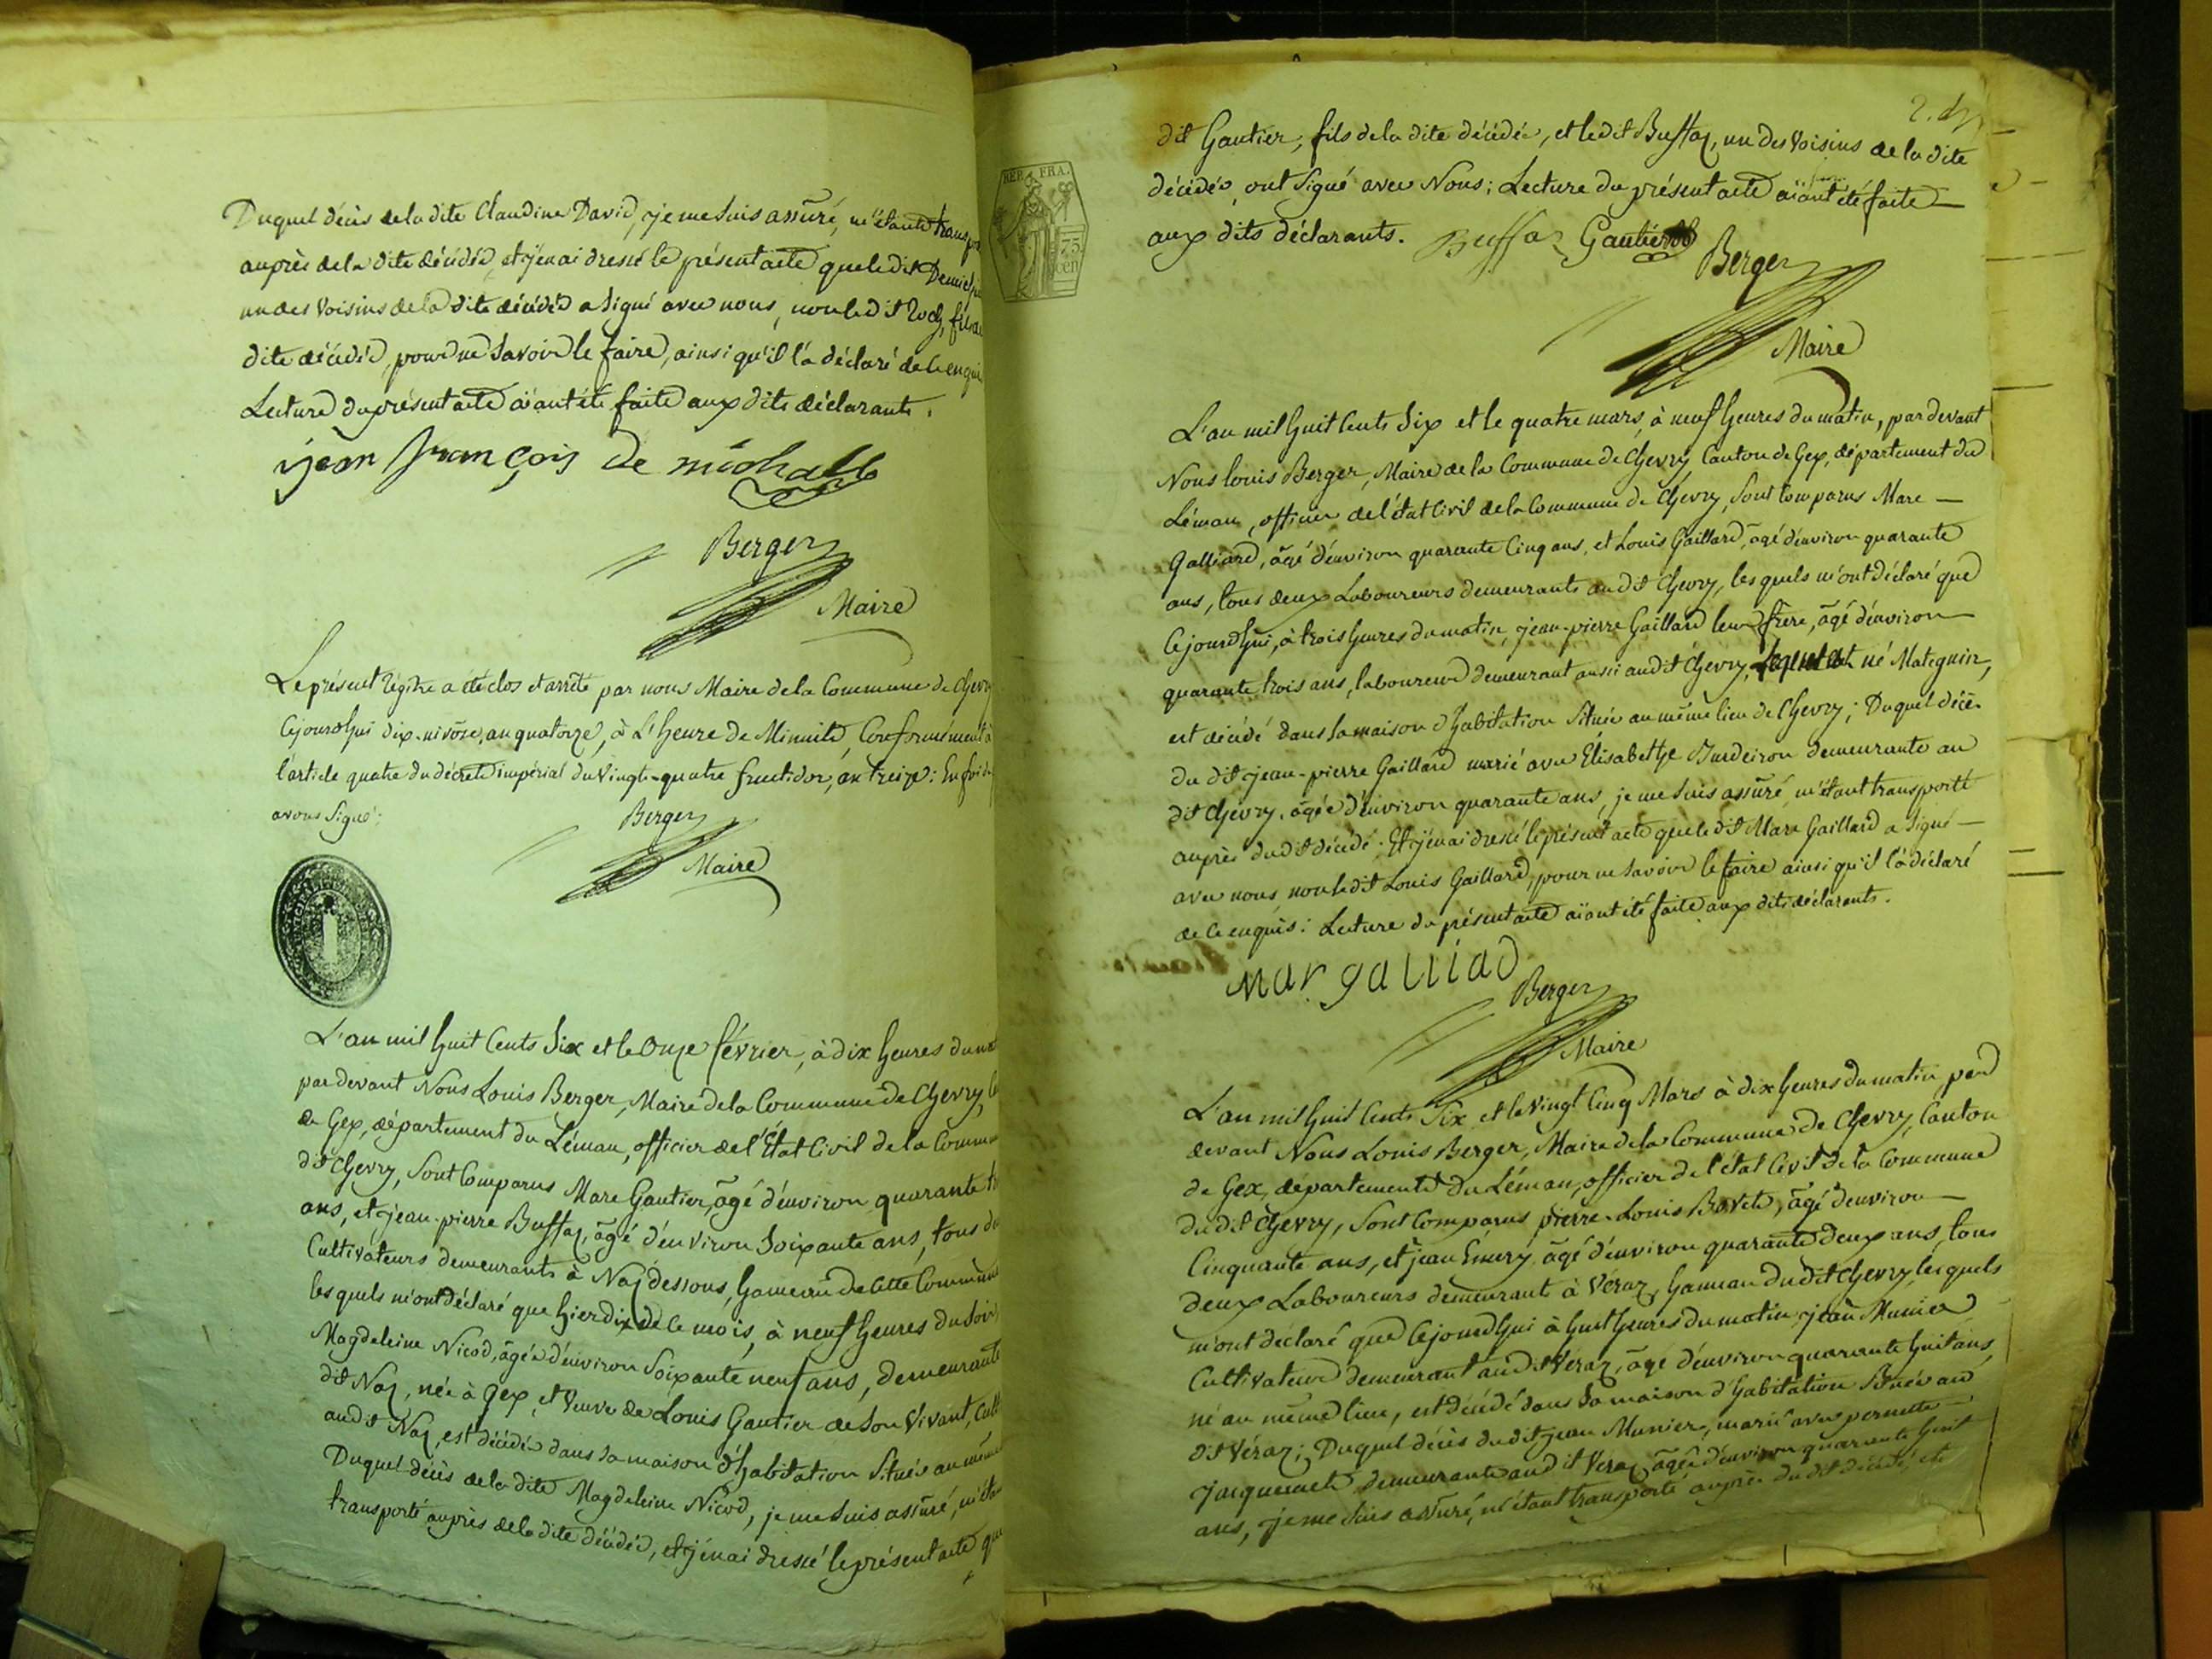 Duquel décès de la dite Claudine David, je me suis assuré, m'étant transpo
auprès de la dite décédée, et j'en ai dressé le présent acte que le dit Demich
un des Voisins de la dite décédée a signé avec nous, non le dit Roch, fils de
dite décédée, pour ne savoir le faire, ainsi qu'il l'a déclaré de ce enqui
Lecture du présent acte aïant été faite aux dits déclarants.
jean françois De michalle
Berger
Maire
Le présent Régitre a été clos et arrêté par nous Maire de la Commune de Chevry
Cejourdhui dix nivôse, an quatorze, à L'heure de Minuit, Conformément à
l'article quatre du décret impérial du Vingt-quatre fructidor, an treize: En foi de
avons Signé:
Berger
Maire
L'an mil huit Cents Six et le Onze février, à dix heures du ma
par devant Nous Louis Berger, Maire de la Commune de Chevry, C
de Gex, département du Léman, officier de l'État Civil de la Commu
dit Chevry, Sont Comparus Marc Gautier, âgé d'environ quarante
ans, et jean-pierre Buffaz, âgé d'environ Soixante ans, tous d
Cultivateurs demeurants à Naz dessous, hameau de Cette Commune
les quels m'ont déclaré que hier dix de Ce mois, à neuf heures du Soir,
Magdeleine Nicod, âgée d'environ Soixante neuf ans, demeurante
dit Naz, née à Gex, et Veuve de Louis Gautier de Son Vivant, Cult
audit Naz, est décédée dans Sa maison d'habitation Située au même
Duquel décès de la dite Magdeleine Nicod, je me suis assuré, m'éta
transporté auprès de la dite décédée, et j'en ai dressé le présent acte que
2.
dit Gautier, fils de la dite décédée, et le dit Buffaz, un des Voisins de la dite
décédée, ont Signé avec Nous; Lecture du présent acte aïant été faite
aux dits déclarants. Buffaz Gautier
REP. FRA.
75
cen
Berger
Maire
L'an mil huit Cents Six et le quatre mars, à neuf heures du matin, par devant
Nous Louis Berger, Maire de la Commune de Chevry Canton de Gex, département du
Léman, officier de l'état Civil de la Commune de Chevry, Sont Comparus Marc
Galliard, âgé d'environ quarante Cinq ans, et Louis Gaillard, âgé d'environ quarante
ans, tous deux Laboureurs demeurants au dit Chevry, les quels m'ont déclaré que
Cejourdhui, à trois heures du matin, jean-pierre Gaillard leur frère, âgé d'environ
quarante trois ans, laboureur demeurant aussi au dit Chevry, né Mategnin,
est décédé dans sa maison d'habitation Située au même lieu de Chevry; Duquel décè-
du dit jean-pierre Gaillard marié avec Élisabethe Burdeiron demeurante au
dit Chevry, âgée d'environ quarante ans, je me suis assuré m'étant transporté
auprès du dit décédé; Et j'en ai dressé le présent acte que le dit Marc Gaillard a Signé
avec nous, non le dit Louis Gaillard, pour ne savoir le faire ainsi qu'il l'a déclaré
de ce enquis: Lecture du présent acte aïant été faite aux dits déclarants.
Mar galliad
Berger
Maire
L'an mil huit Cents Six, et le Vingt Cinq Mars à dix heures du matin, par
devant Nous Louis Berger, Maire de la Commune de Chevry, Canton
de Gex, département du Léman, officier de l'état Civil de la Commune
du dit Chevry, Sont Comparus pierre-Louis Bovet, âgé d'environ
Cinquante ans, et jean Émery âgé d'environ quarante deux ans, tous
deux Laboureurs demeurant à Véraz, hameau du dit Chevry, les quels
m'ont déclaré que Cejourdhui à huit heures du matin, jean Munier
Cultivateur demeurant au dit Véraz, âgé d'environ quarante huit ans,
né au même lieu, est décédé dans Sa maison d'habitation Située au
dit Véraz; Duquel décès du dit jean Munier, marié avec pernette
jacquemet, demeurante au dit Véraz âgée d'environ quarante huit
ans, je me Suis assuré, m'étant transporté auprès du dit décédé, et